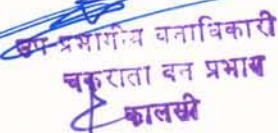 उप प्रभागीय वनाधिकारी
चकराता वन प्रभाग
कालसी